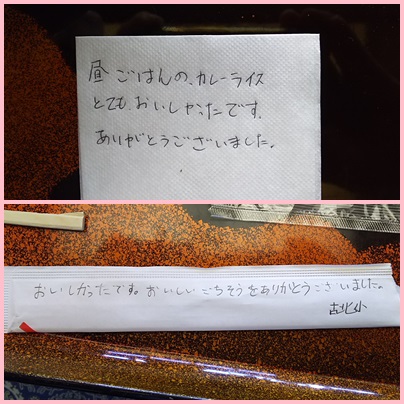 昼ごはんの、カレーライス
とても、おいしかったです。
ありがとうございました。
おいしかったです。おいしいごちそうをありがとうございました。
古北小